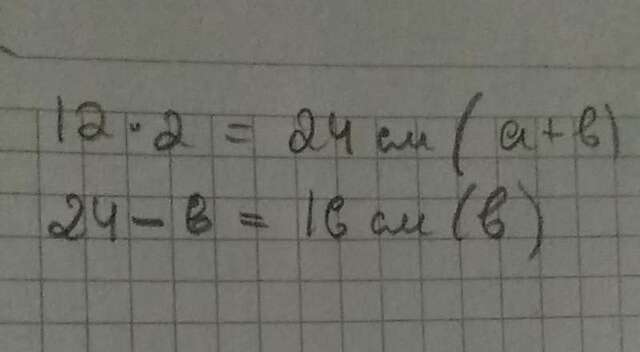 12 · 2 = 24 см (а + в)
24 - 8 = 16 см (в)